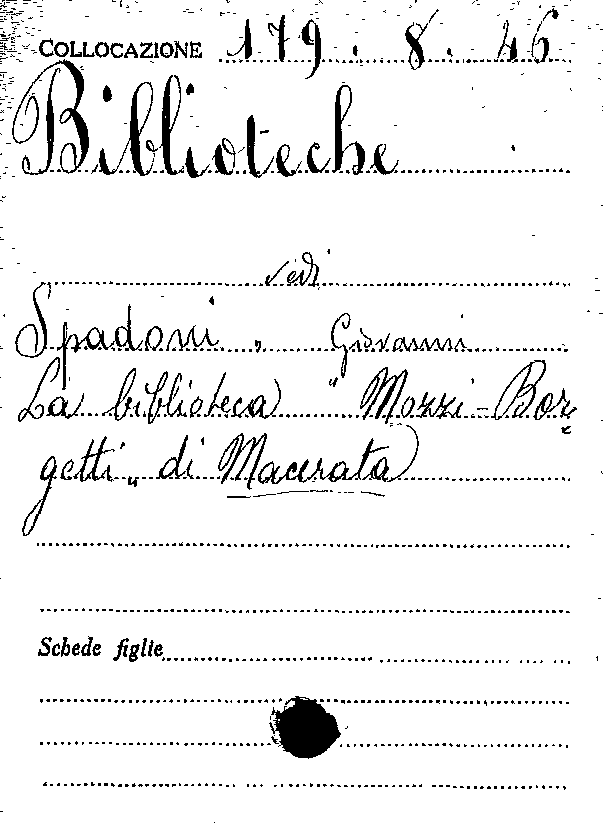 COLLOCAZIONE 179. 8. 46
Biblioteche
vedi
Spadoni, Giovanni
La biblioteca "Mozzi-Bor-
getti" di Macerata
Schede figlie